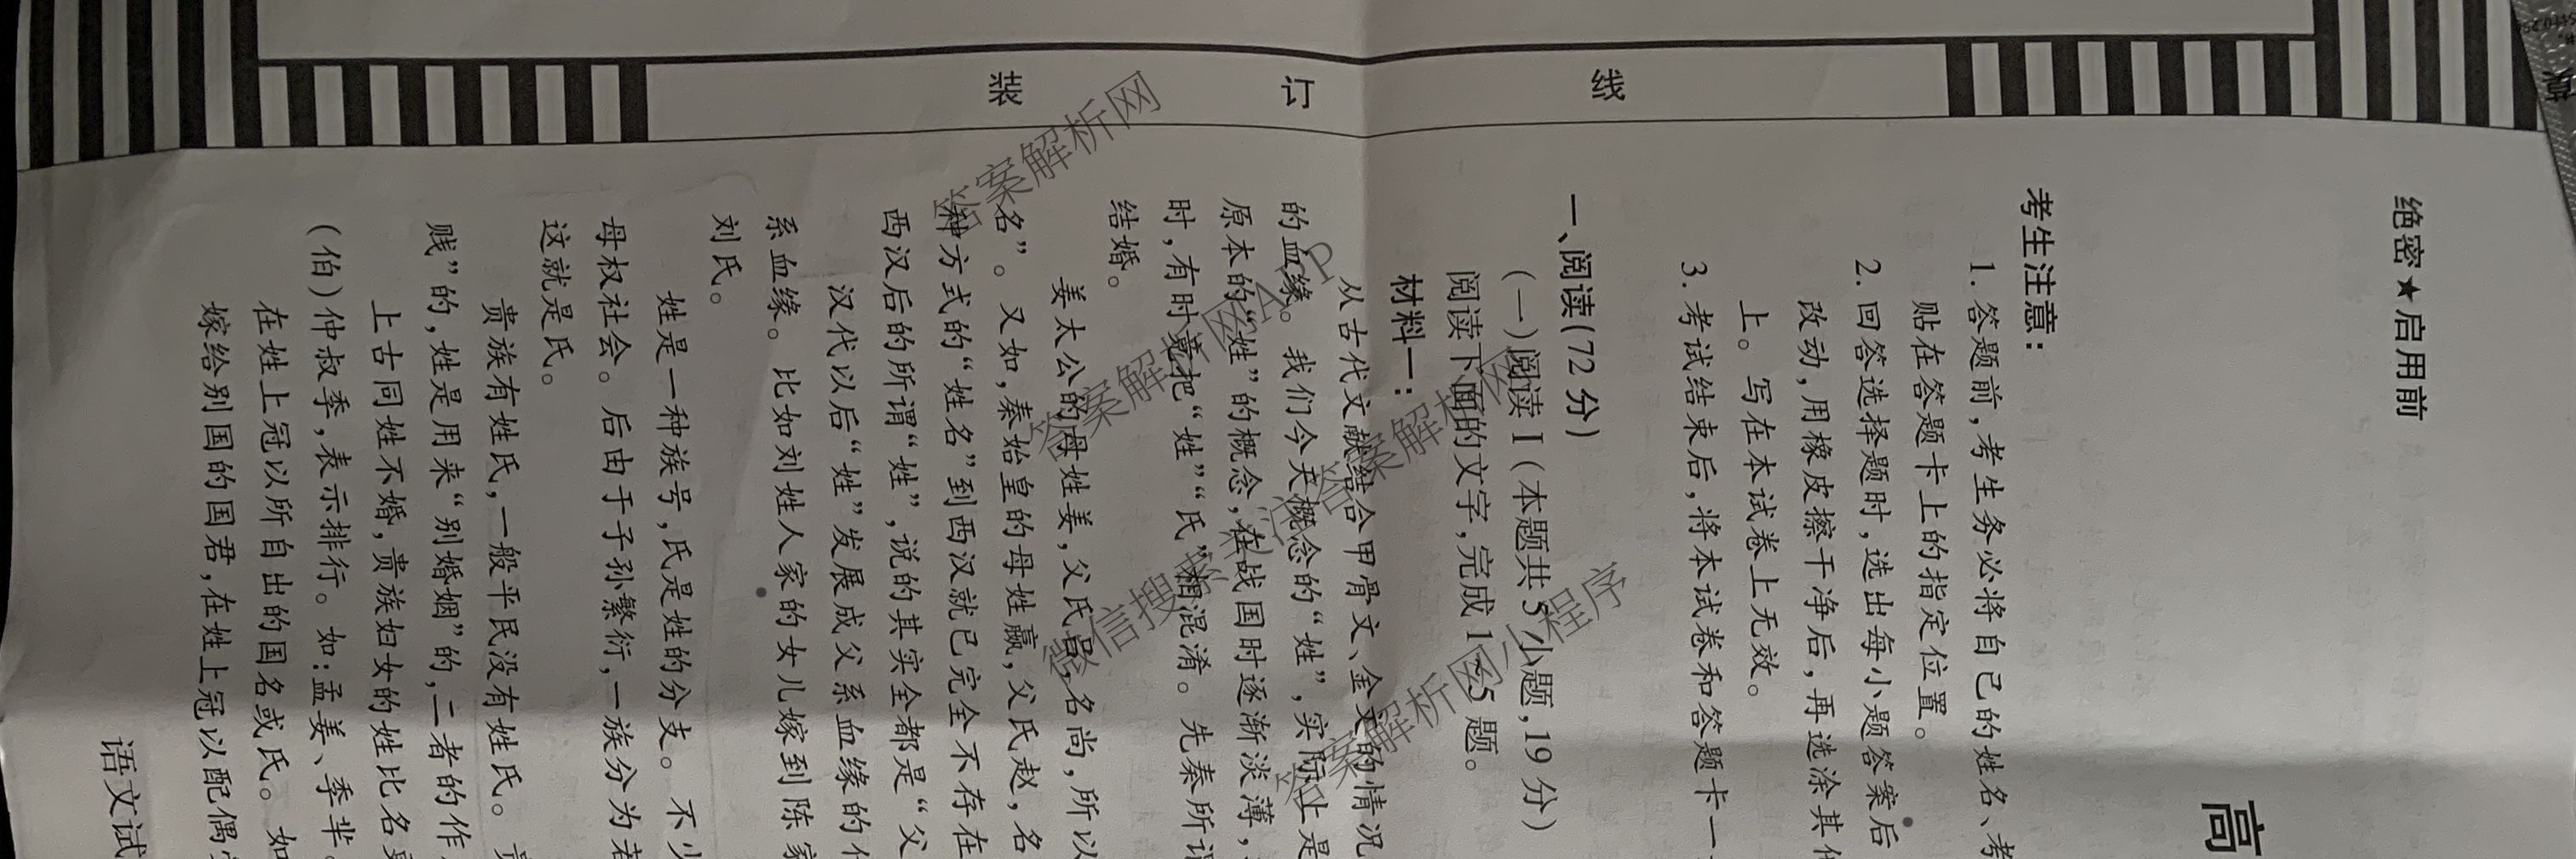 绝密★启用前
高
考生注意：
1. 答题前，考生务必将自己的姓名、考
贴在答题卡上的指定位置。
2. 回答选择题时，选出每小题答案后
改动，用橡皮擦干净后，再选涂其他
上。写在本试卷上无效。
3. 考试结束后，将本试卷和答题卡一
一、阅读（72 分）
（一）阅读 I（本题共 5 小题，19 分）
阅读下面的文字，完成 1~5 题。
材料一：
从古代文献结合甲骨文、金文的情况
的血缘。我们今天概念的“姓”，实际上是
原本的“姓”的概念，在战国时逐渐淡薄，
时，有时竟把“姓”“氏”相混淆。先秦所谓
结婚。
姜太公的母姓姜，父氏吕，名尚，所以
名”。又如，秦始皇的母姓嬴，父氏赵，名
种方式的“姓名”到西汉就已完全不存在
西汉后的所谓“姓”，说的其实全都是“父
汉代以后“姓”发展成父系血缘的代
系血缘。比如刘姓人家的女儿嫁到陈家
刘氏。
姓是一种族号，氏是姓的分支。不少
母权社会。后由于子孙繁衍，一族分为若
这就是氏。
贵族有姓氏，一般平民没有姓氏。贵
贱”的，姓是用来“别婚姻”的，二者的作
上古同姓不婚，贵族妇女的姓比名更
（伯）仲叔季，表示排行。如：孟姜、季芈
在姓上冠以所自出的国名或氏。如
嫁给别国的国君，在姓上冠以配偶
语文试
装
订
线
答案解析网
答案解析网APP
微信搜索
答案解析网
答案解析网小程序